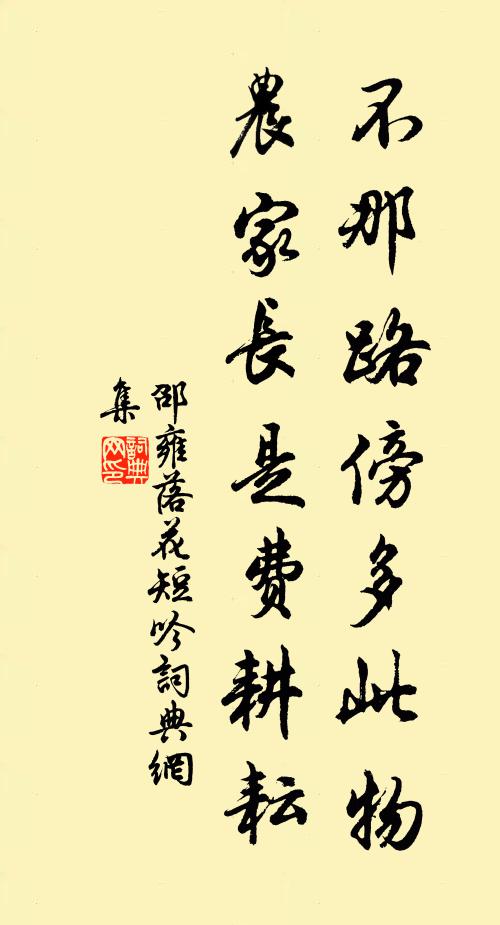 不那路傍多此物
農家長是費耕耘
邵雍落花短吟詞典網
集
詞典
网印